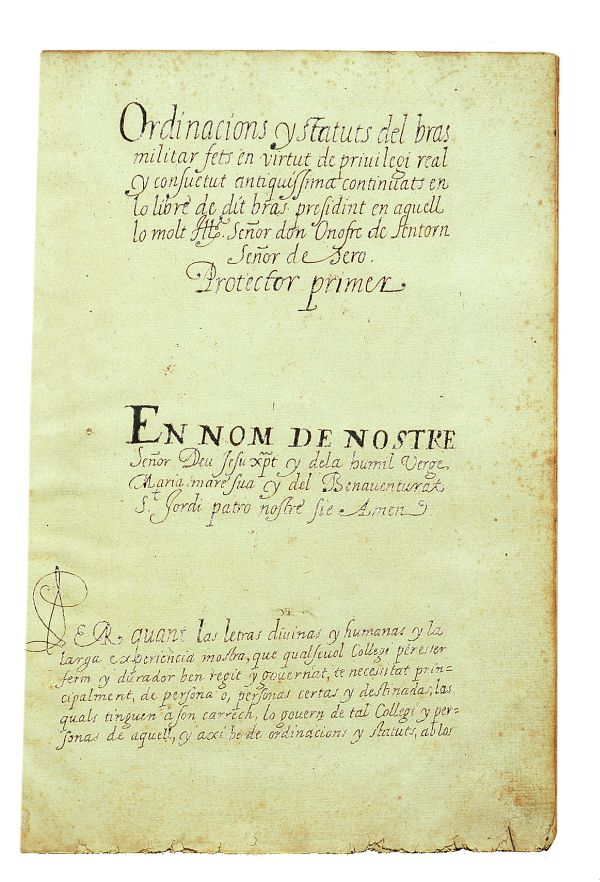 Ordinacions y statuts del bras
militar fets en virtut de privilegi real
y consuetut antiquissima continuats en
lo libre de dit bras presidint en aquell
lo molt Señor don Onofre de Sentorn
Señor de Sero.
Protector primer
EN NOM DE NOSTRE
Señor Deu Jesu xp̃t y dela humil Verge
Maria mare sua y del Benaventurat
S.t Jordi patro nostre sie Amen
PER quant las letras divinas y humanas y la
larga experiencia mostra, que qualsevol Collegi peresser
ferm y durador ben regit y governat, te necessitat prin-
cipalment, de persona o, personas certas y destinadas, las
quals tinguen a son carrech, lo govern de tal Collegi y per-
sonas de aquell, y axi be de ordinacions y statuts, ab los